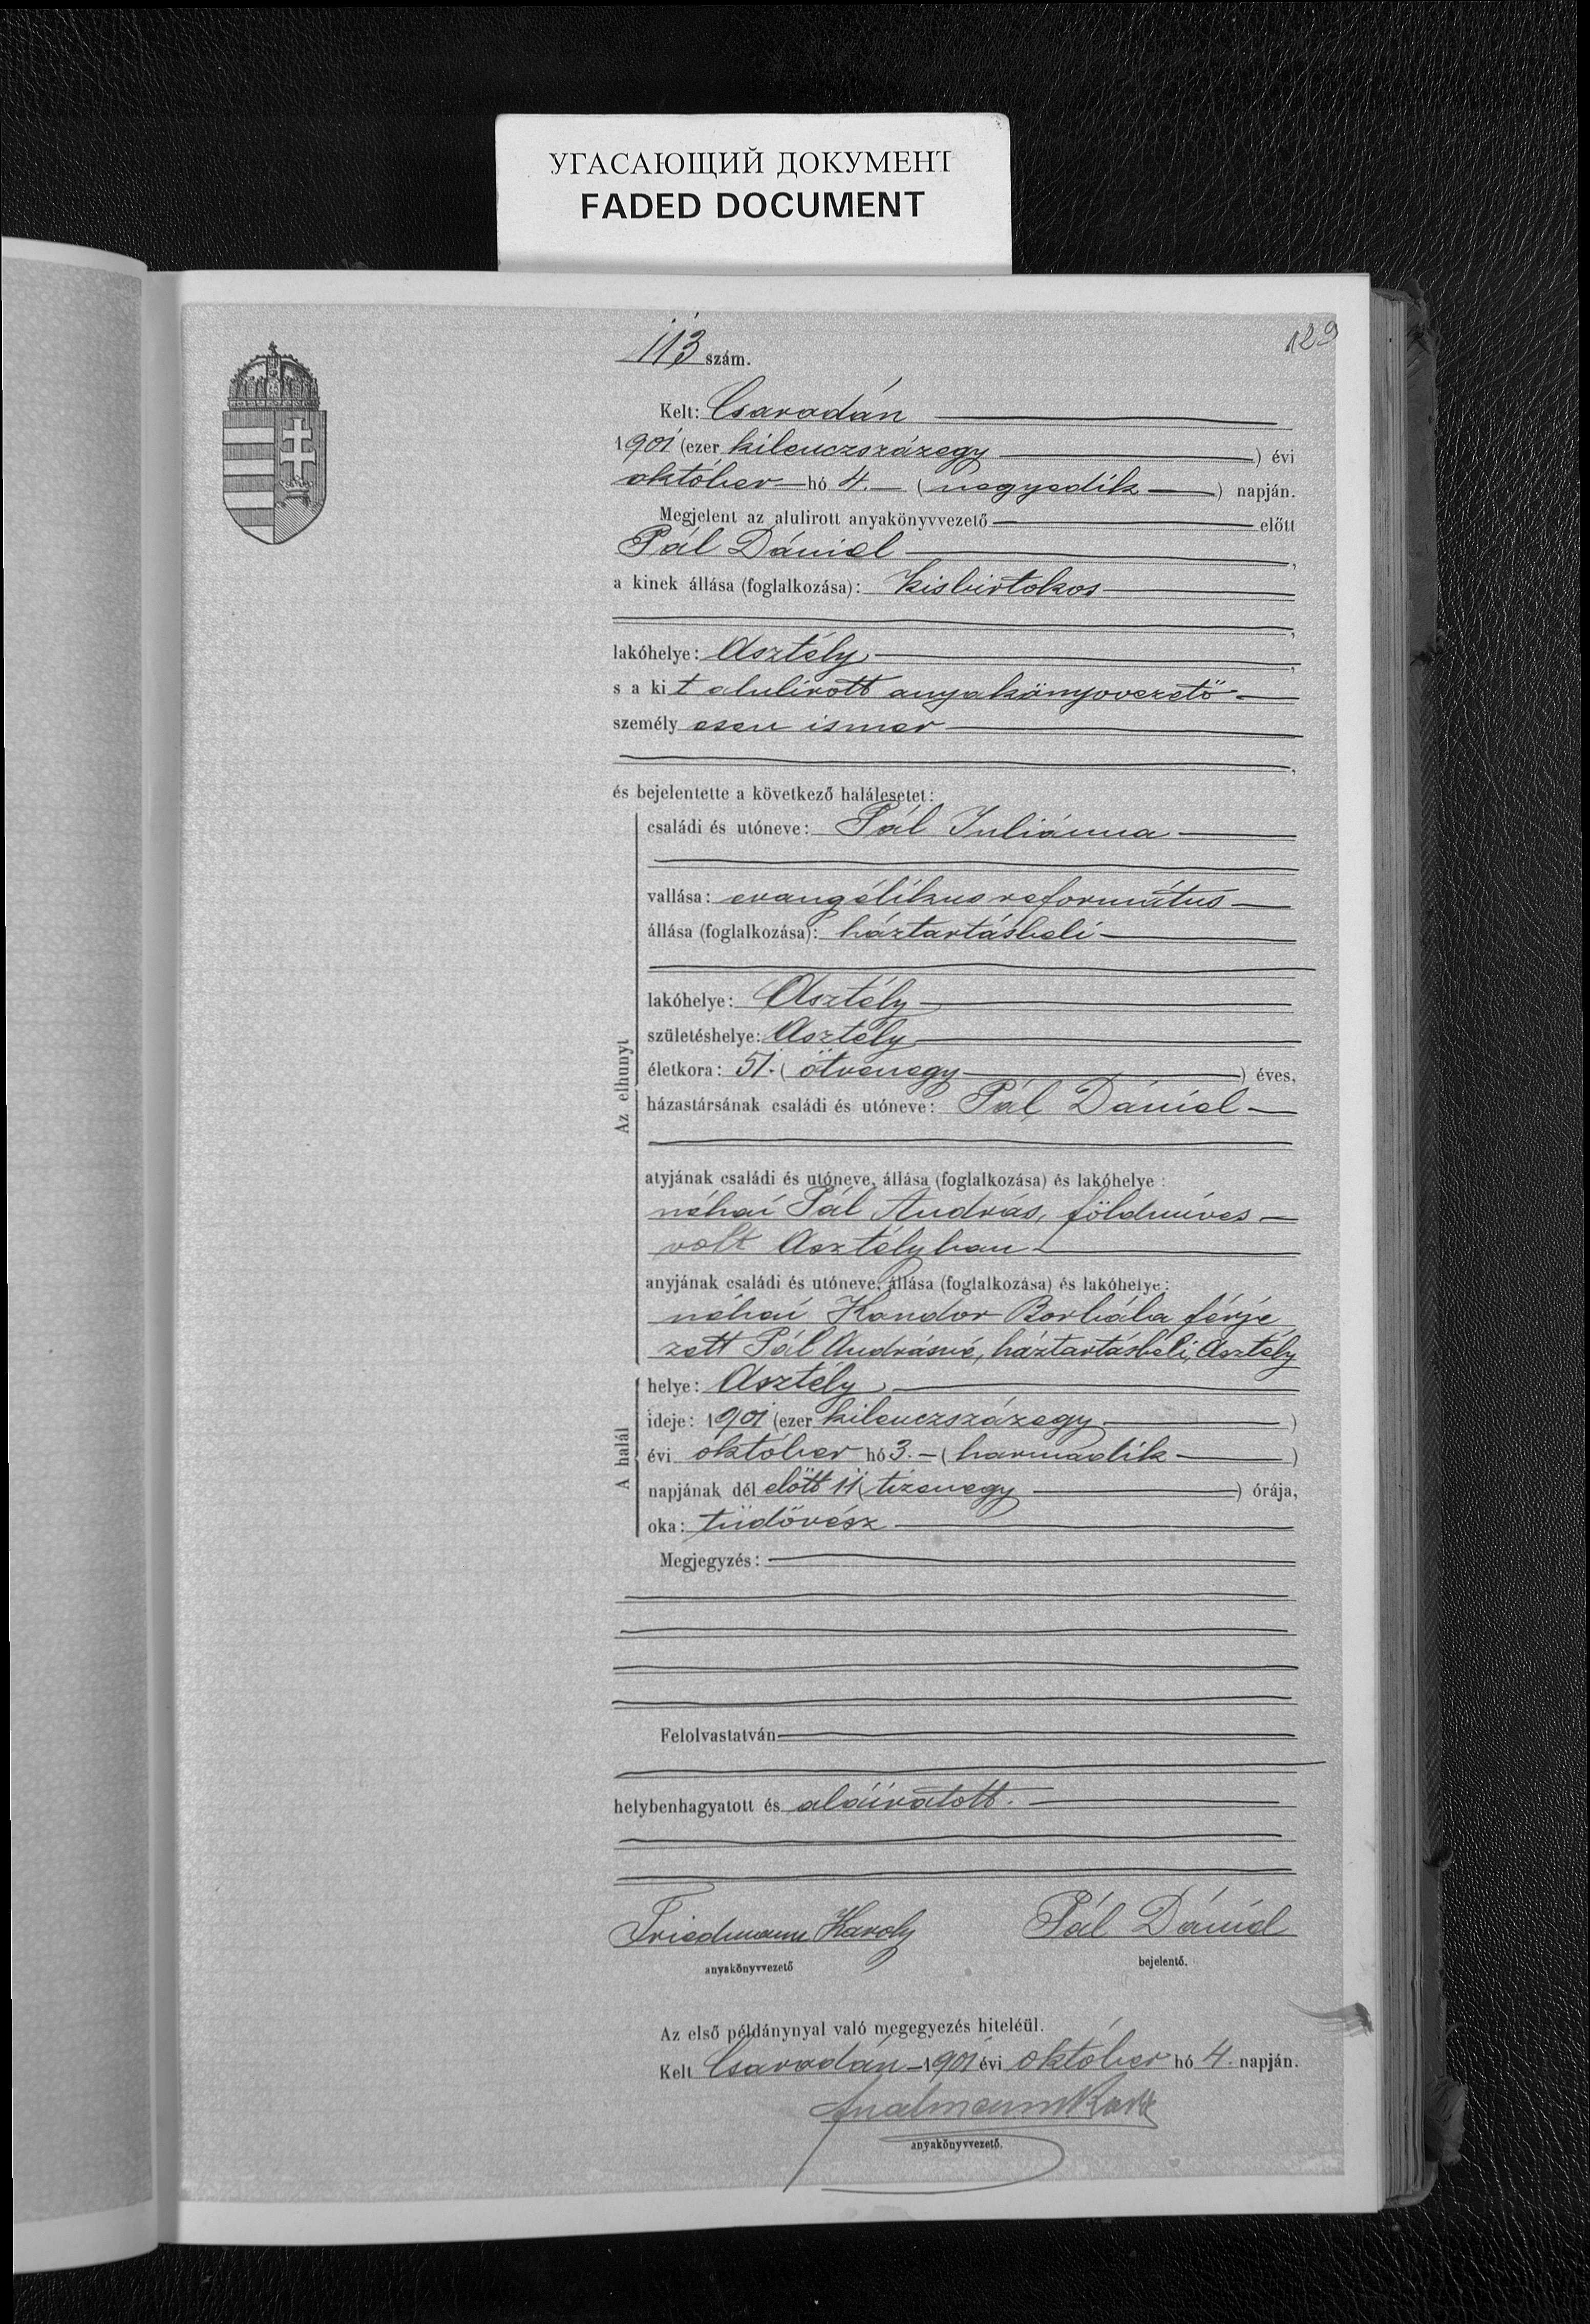 УГАСАЮЩИЙ ДОКУМЕНТ
FADED DOCUMENT
129
113 szám.
Kelt: Csarodán
1901 (ezer kilenczszázegy) évi
október hó 4. (negyedik) napján.
Megjelent az alulirott anyakönyvvezető előtt
Pál Dániel,
a kinek állása (foglalkozása): kisbirtokos
,
lakóhelye: Asztély,
s a kit alulirott anyakönyvvezető
személyesen ismer
,
és bejelentette a következő halálesetet:
Az elhunyt
családi és utóneve: Pál Juliánna
vallása: evangélikus református
állása (foglalkozása): háztartásbeli
lakóhelye: Asztély
születéshelye: Asztély
életkora: 51. (ötvenegy) éves,
házastársának családi és utóneve: Pál Dániel
atyjának családi és utóneve, állása (foglalkozása) és lakóhelye:
néhai Pál András, földmíves
volt Asztélyban
anyjának családi és utóneve, állása (foglalkozása) és lakóhelye:
néhai Kandor Borbála férje
zett Pál Andrásné, háztartásbeli, Asztély
A halál
helye: Asztély
ideje: 1901 (ezer kilenczszázegy)
évi október hó 3. (harmadik)
napjának dél előtt 11 (tizenegy) órája,
oka: tüdővész
Megjegyzés:
Felolvastatván
helybenhagyatott és aláíratott.
Friedmann Karoly Pál Dániel
anyakönyvvezető bejelentő.
Az első példánynyal való megegyezés hiteléül.
Kelt Csarodán 1901 évi október hó 4. napján.
anyakönyvvezető.